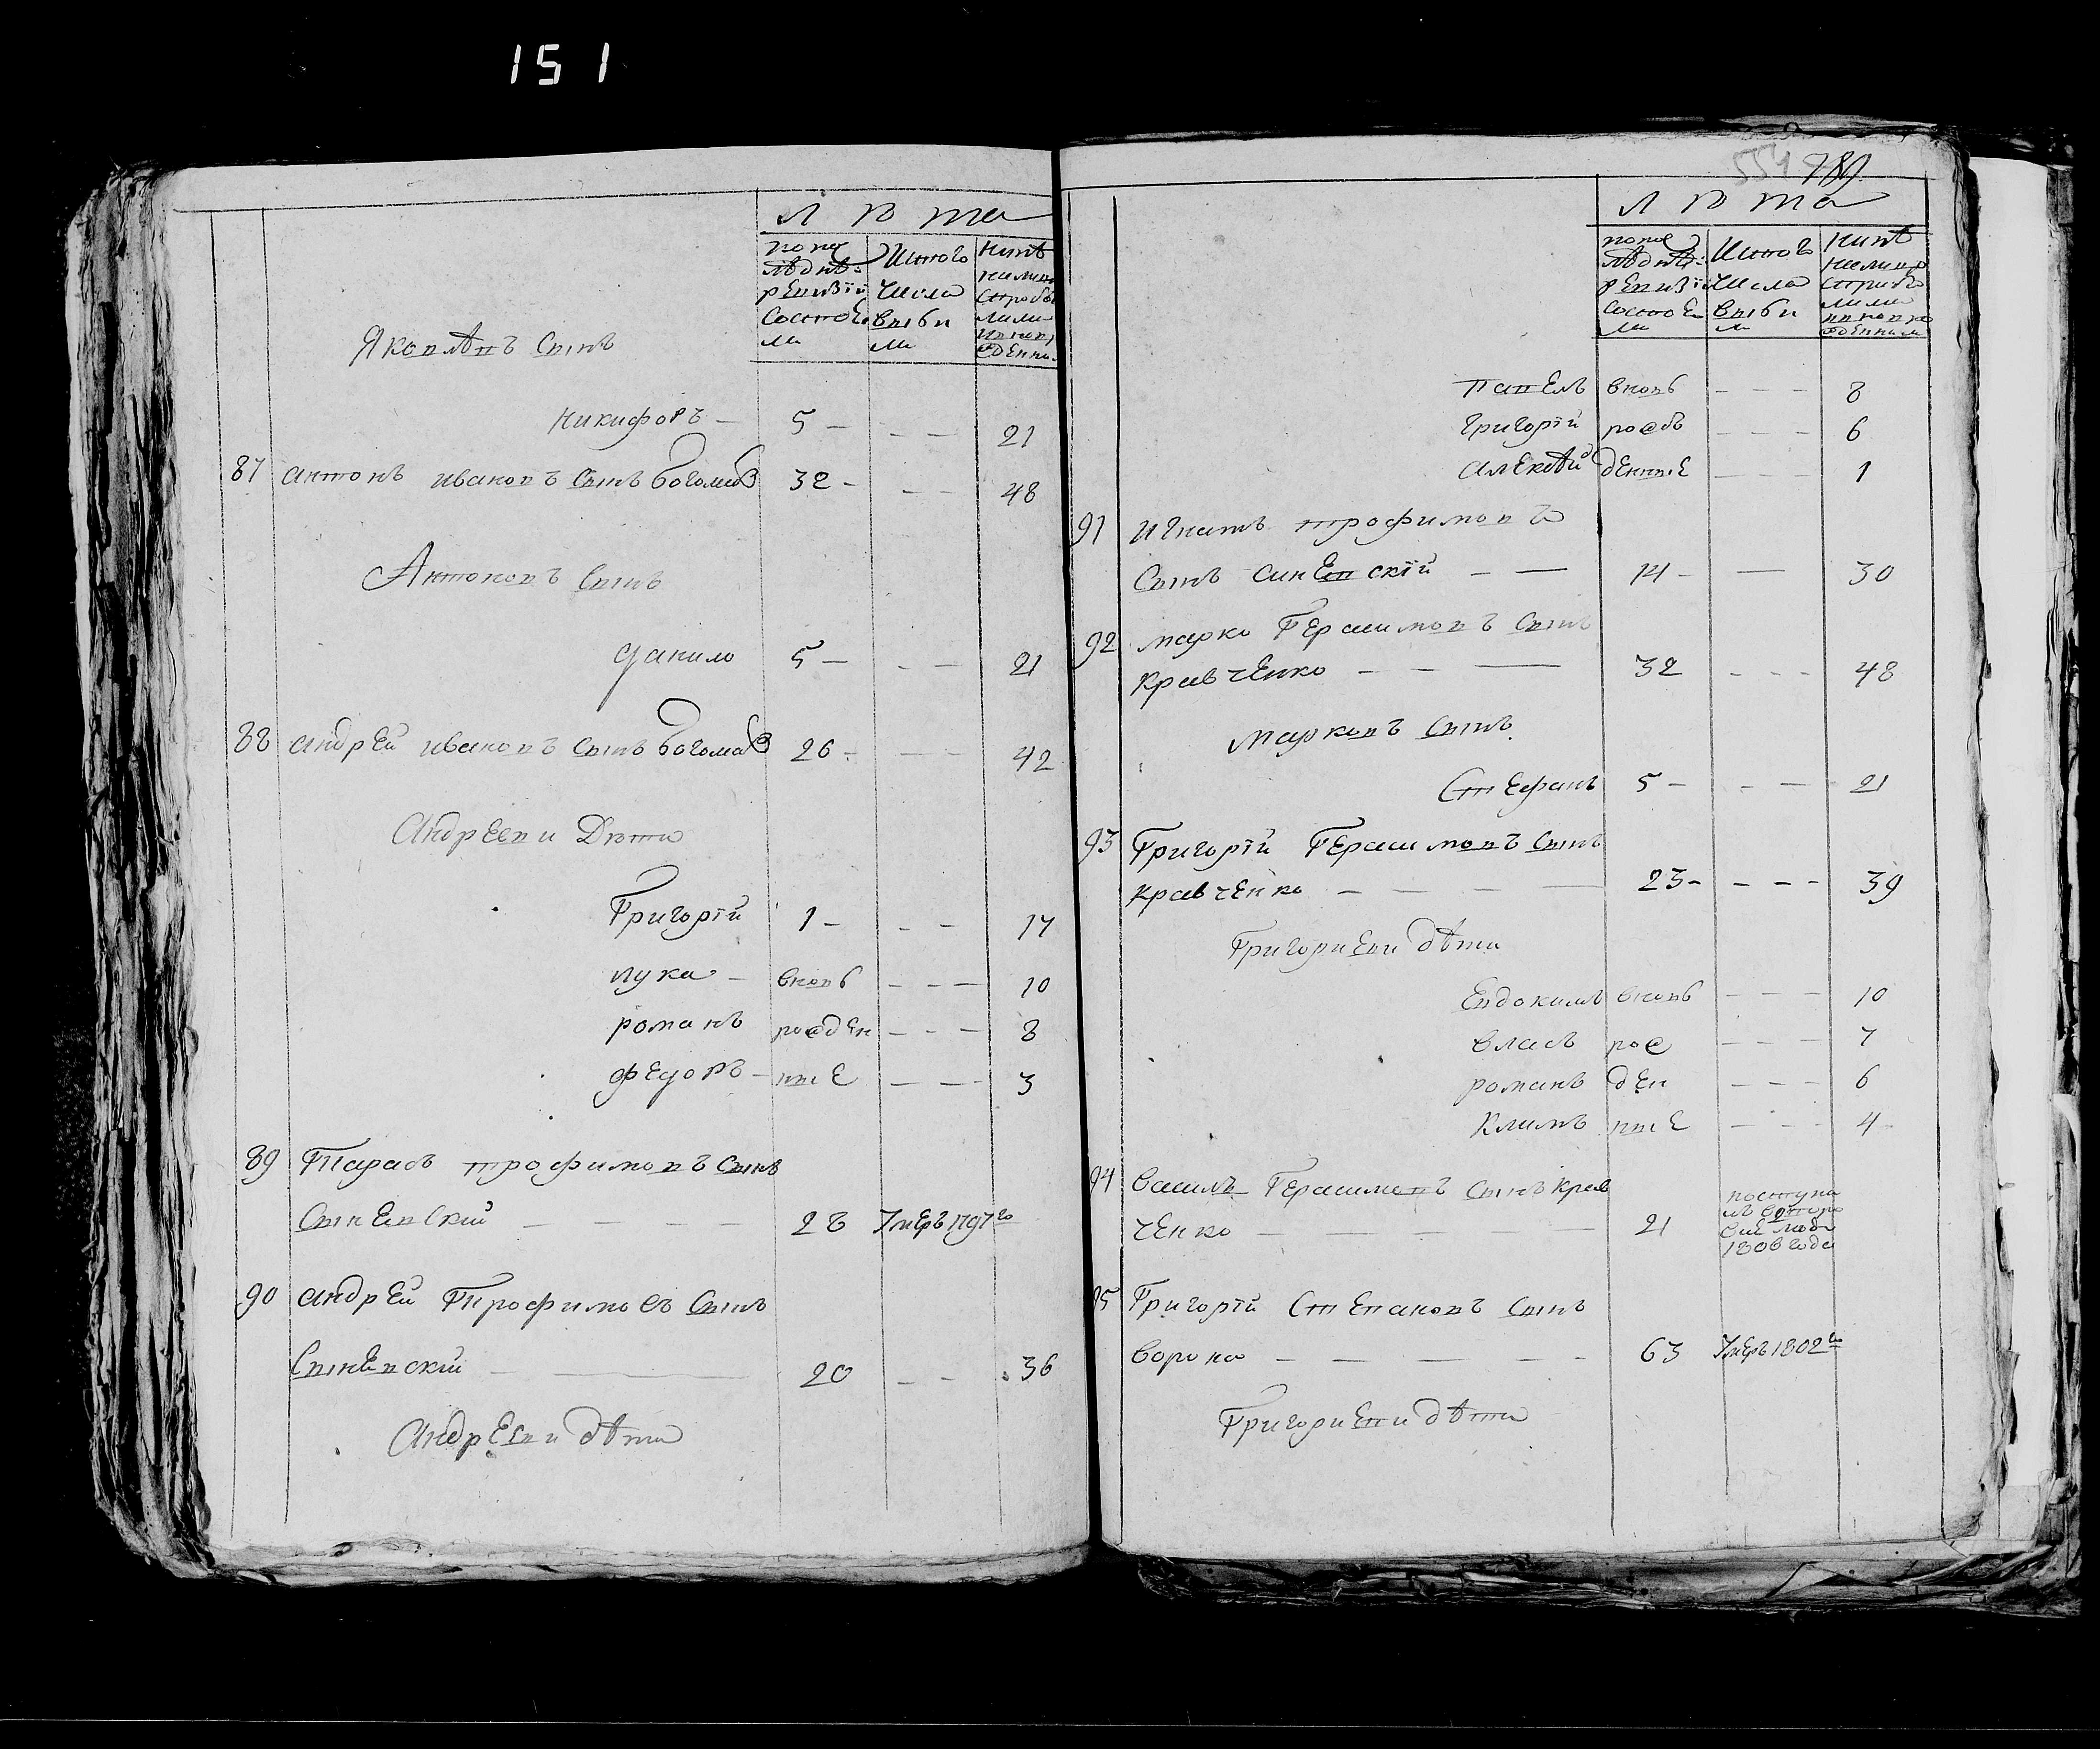 151
Лѣта
по посlѣдней ревизіи состояли
Изтого числа выбыли
Нынѣ налицо
Яковлевъ сынъ
Никифоръ — 5 — — — 21
87 Антонъ Ивановъ сынъ Богомаз 32 - — — 48
Антоновъ сынъ
Данило 5 — — — 21
88 Андрей Ивановъ сынъ Богомаз 26 - — — 42
Андрееви Дѣти
Григорій 1 — — — 17
лука — вновь — — — 10
романъ рожден — — — 8
федоръ — ные — — — 3
89 Тарасъ трофимовъ сынъ
Сыневский — — — — 28 Умеръ 1797го
90 Андрей Трофимовъ сынъ
Сыневский — — 20 — — 36
Андрееви дѣти
554 789
Лѣта
Изтого числа выбыли
Павелъ вновь — — — 8
Григорій рожд — — — 6
Алексѣй денные — — — 1
91 Игнатъ трофимовъ
сынъ синевскій — — 14 - — 30
92 марко Герасимовъ сынъ
Кравченко — — — 32 - - - 48
Марковъ сынъ
Стефанъ 5 — - — — 21
93 Григорій Герасимовъ сынъ
кравченко — — — — 23 - - - - 39
Григориеви дѣти
Евдокимъ вновь — — — 10
власъ рож — — — 7
романъ ден — — — 6
Климъ ные — — — 4
94 Василь Герасимовъ сынъ Крав
ченко — — — — — 21
1806 года
95 Григорій Степановъ сынъ
Ворона — — — — — 63 Умеръ 1802го
Григориеви дѣти